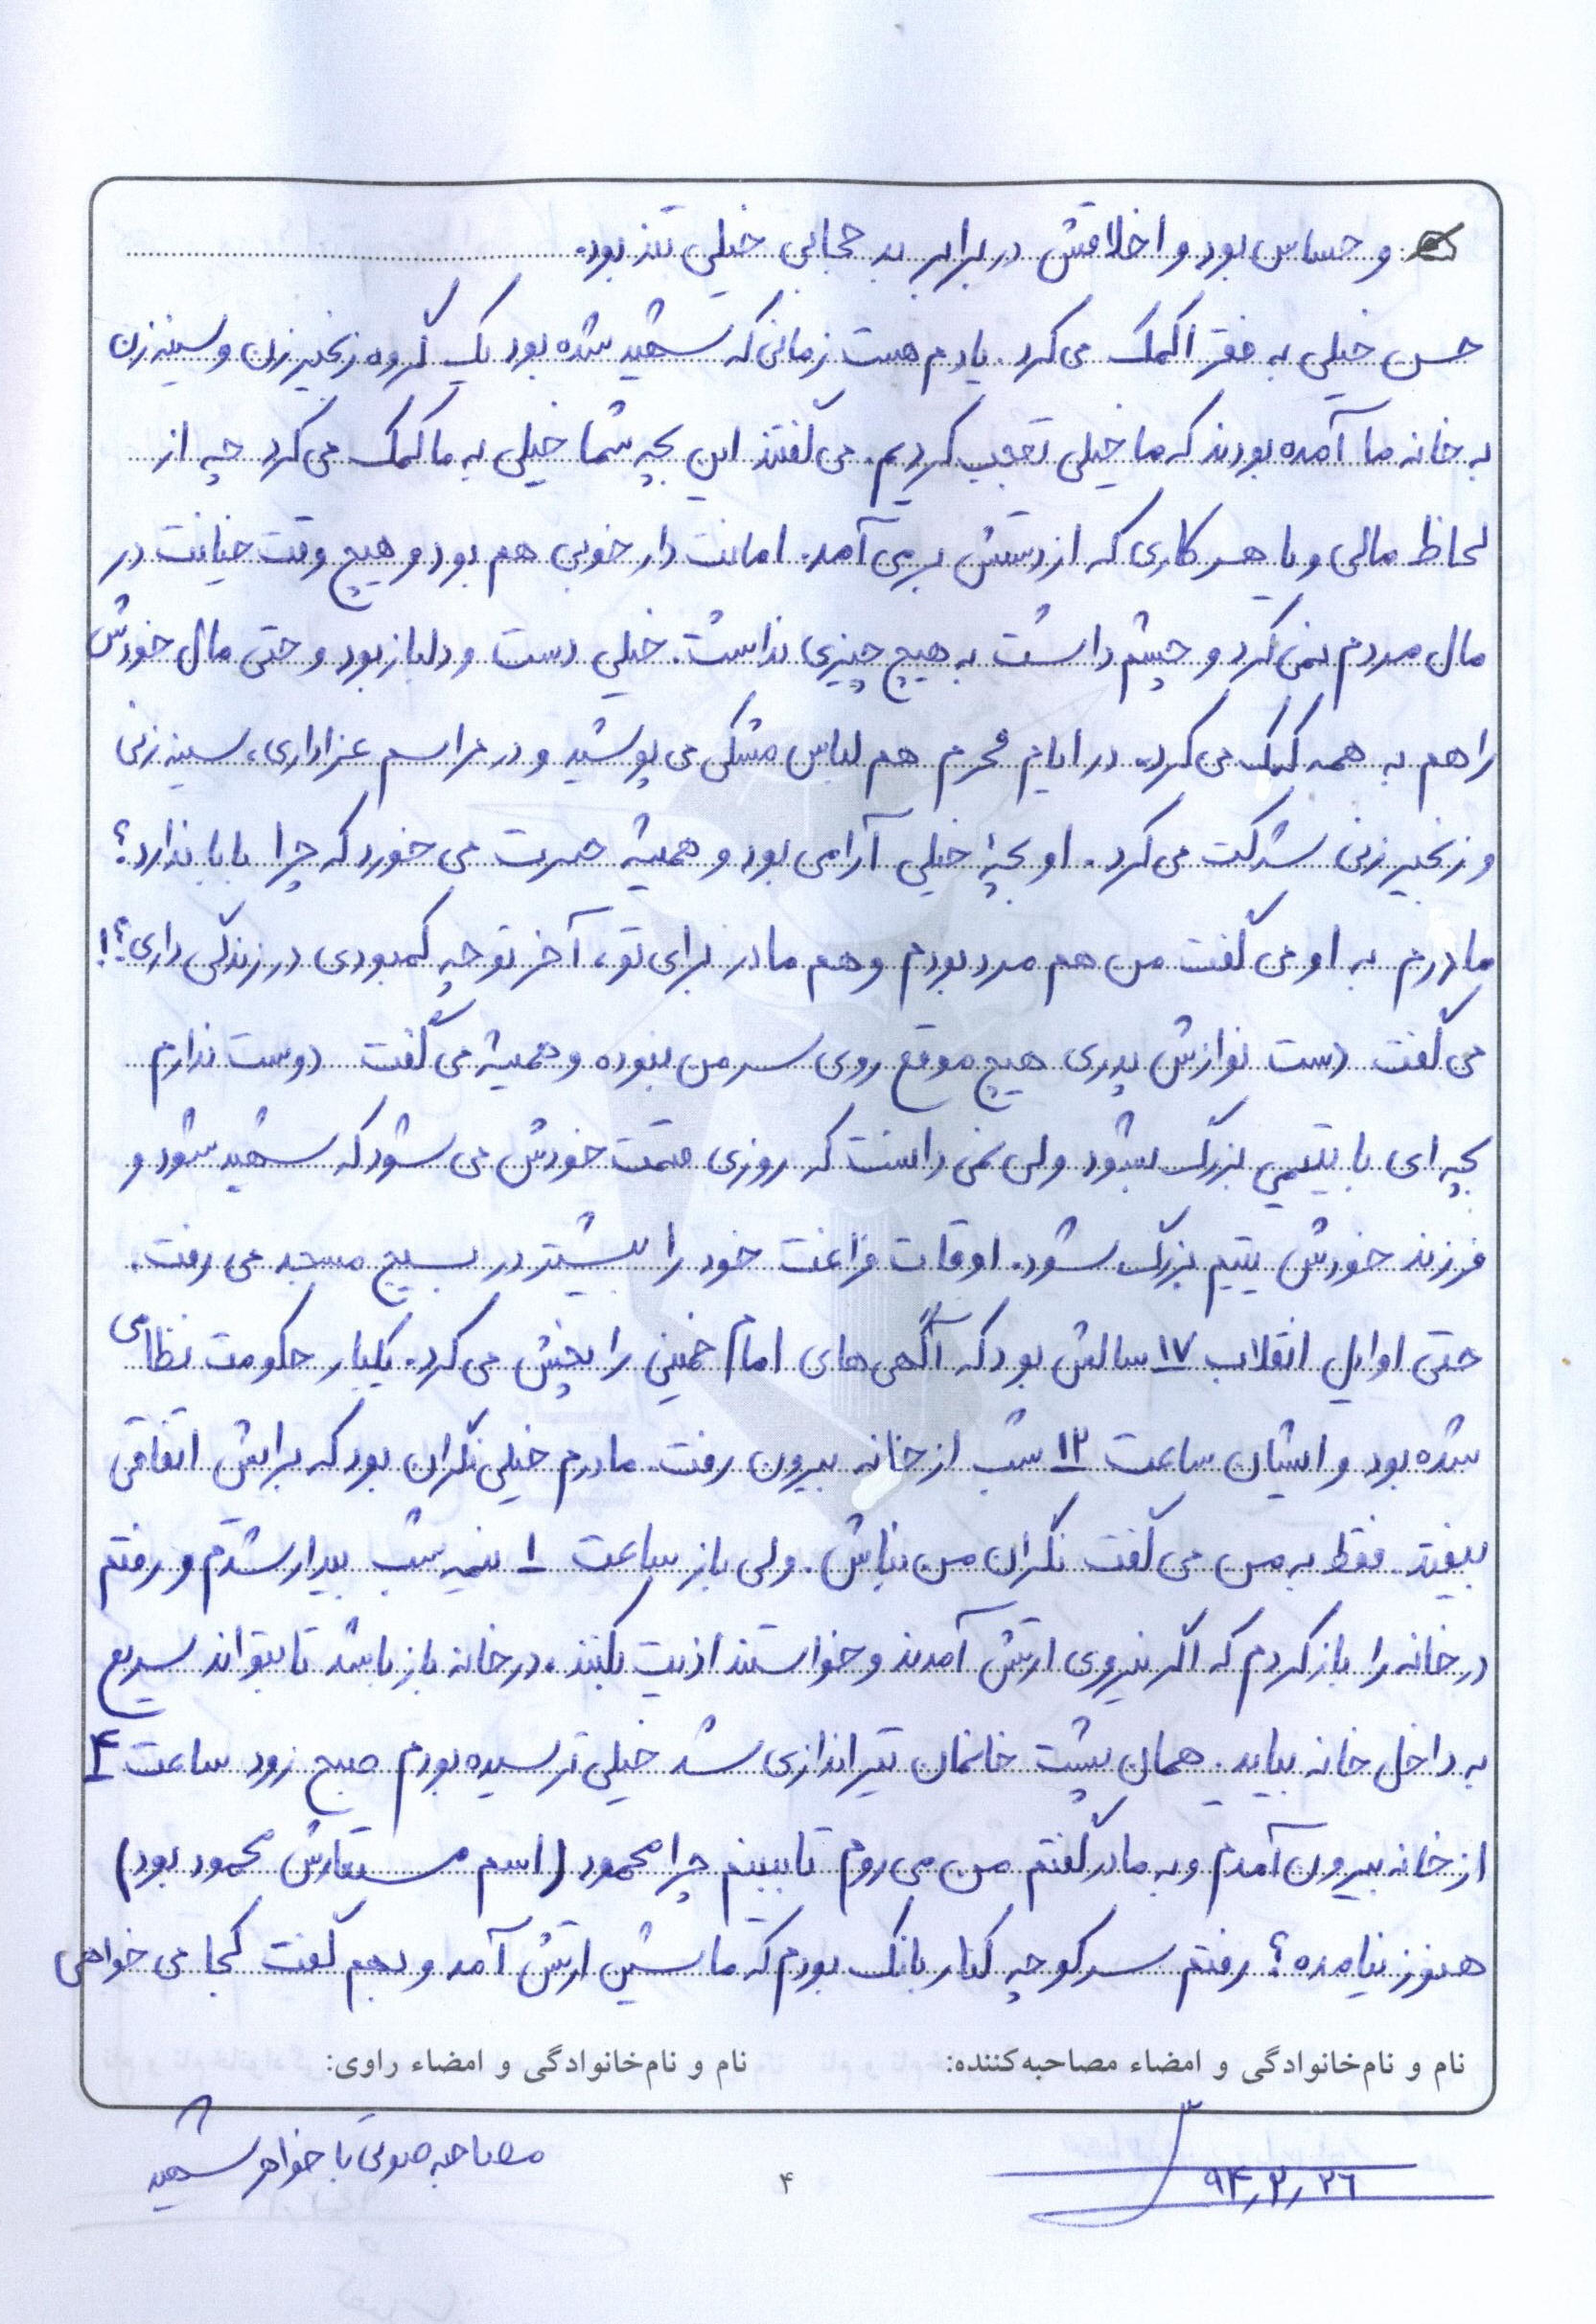 و حساس بود و اخلاقش در برابر بد حجابی خیلی تند بود.
حسن خیلی به فقرا کمک می‌کرد. یادم هست زمانی که شهید شده بود یک گروه زنجیرزن و سینه‌زن
به خانه ما آمده بودند که ما خیلی تعجب کردیم. می‌گفتند این بچه شما خیلی به ما کمک می‌کرد چه از
لحاظ مالی و یا هر کاری که از دستش بر می‌آمد. امانت دار خوبی هم بود و هیچ وقت خیانت در
مال مردم نمی‌کرد و چشم داشت به هیچ چیزی نداشت. خیلی دست و دلباز بود و حتی مال خودش
را هم به همه کمک می‌کرد. در ایام محرم هم لباس مشکی می‌پوشید و در مراسم عزاداری، سینه زنی
و زنجیر زنی شرکت می‌کرد. او بچهٔ خیلی آرامی بود و همیشه حسرت می‌خورد که چرا بابا ندارد؟
مادرم به او می‌گفت من هم مرد بودم و هم مادر برای تو، آخر تو چه کمبودی در زندگی داری؟!
می‌گفت دست نوازش پدری هیچ موقع روی سر من نبوده و همیشه می‌گفت دوست ندارم
بچه‌ای با یتیمی بزرگ بشود ولی نمی‌دانست که روزی قسمت خودش می‌شود که شهید شود و
فرزند خودش یتیم بزرگ شود. اوقات فراغت خود را بیشتر در بسیج مسجد می‌رفت.
حتی اوایل انقلاب ۱۷ سالش بود که آگهی‌های امام خمینی را پخش می‌کرد. یکبار حکومت نظامی
شده بود و ایشان ساعت ۱۲ شب از خانه بیرون رفت. مادرم خیلی نگران بود که برایش اتفاقی
بیفتد. فقط به من می‌گفت نگران من نباش. ولی باز ساعت ۱ نیمه شب بیدار شدم و رفتم
در خانه را باز کردم که اگر نیروی ارتش آمدند و خواستند اذیت بکنند، در خانه باز باشد تا بتواند سریع
به داخل خانه بیاید. همان پشت خانمان تیراندازی شد خیلی ترسیده بودم صبح زود ساعت ۴
از خانه بیرون آمدم و به مادر گفتم من می‌روم تا ببینم چرا محمود (اسم مستعارش محمود بود)
هنوز نیامده؟ رفتم سر کوچه کنار بانک بودم که ماشین ارتش آمد و بهم گفت کجا می‌خواهی
نام و نام‌خانوادگی و امضاء مصاحبه‌کننده: نام و نام‌خانوادگی و امضاء راوی:
مصاحبه صوتی با خواهر شهید
۹۴٫۲٫۲۶
۴